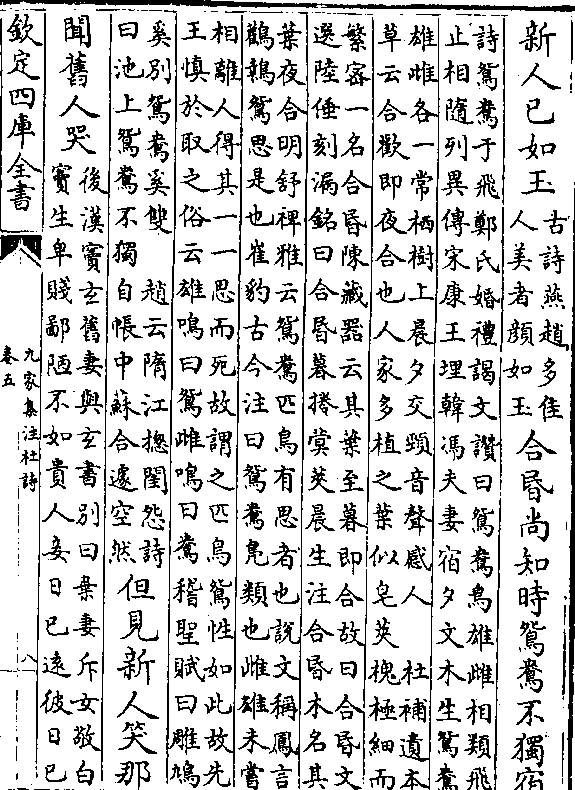 新人已如玉
古詩燕趙多佳
人美者顔如玉
合昏尚知時鴛鴦不獨宿
詩鴛鴦于飛鄭氏婚禮謁文讚曰鴛鴦鳥雄雌相類飛
止相隨列異傳宋康王埋韓馮夫妻宿夕文木生鴛鴦
雄雌各一常栖樹上晨夕交頸音聲感人　杜補遺本
草云合歡即夜合也人家多植之葉似皂莢槐極細而
繁密一名合昏陳藏器云其葉至暮即合故曰合昏文
選陸倕刻漏銘曰合昏暮捲蓂莢晨生注合昏木名其
葉夜合明舒裨雅云鴛鴦匹鳥有思者也說文稱鳳言
鸛鶴鴛思是也崔豹古今注曰鴛鴦鳬類也雌雄未嘗
相離人得其一一思而死故謂之匹鳥鴛性如此故先
王慎於取之俗云雄鳴曰鴛雌鳴曰鴦稽聖賦曰雎鳩
奚别鴛鴦奚雙　趙云隋江揔閨怨詩
曰池上鴛鴦不獨自帳中蘇合還空然
但見新人笑那
聞舊人哭
後漢竇玄舊妻與玄書别曰棄妻斥女敬白
竇生卑賤鄙陋不如貴人妾日已遠彼日已
欽定四庫全書
九家集注杜詩
卷五
八